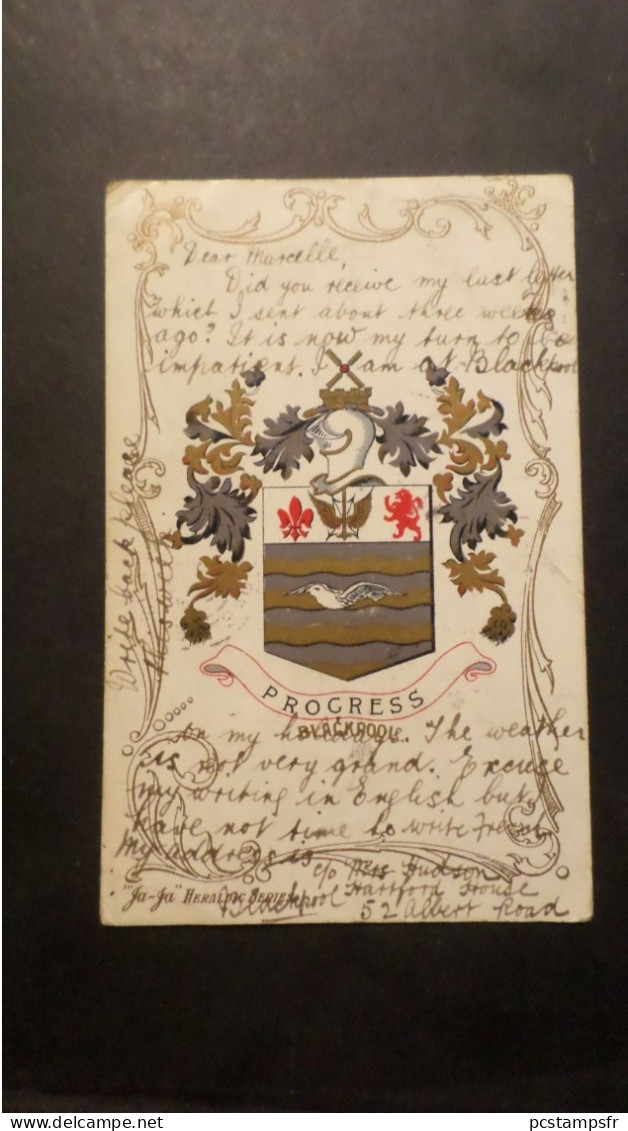 Dear Marcelle,
Did you receive my last letter
which I sent about three weeks
ago? It is now my turn to be
impatient. I am at Blackpool
Write back please
PROGRESS
BLACKPOOL.
on my holidays. The weather
is not very grand. Excuse
my writing in English but
have not time to write French
My address is
c/o Mrs Hudson
Hartford House
52 Albert Road
Blackpool
"Ja-Ja" HERALDIC SERIES
delcampe.net
pcstampsfr